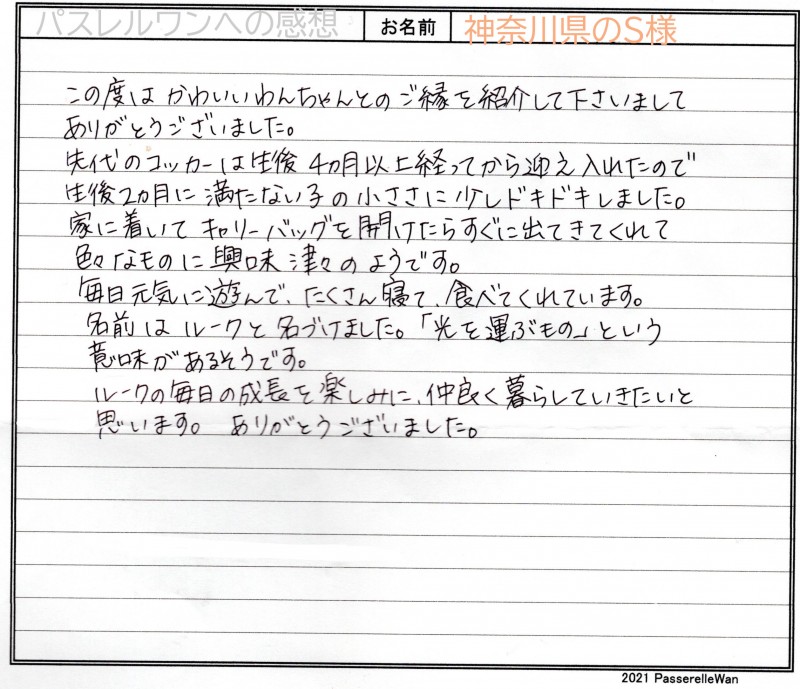 パスレルワンへの感想 お名前 神奈川県のS様
この度は かわいいわんちゃんとのご縁を紹介して下さいまして
ありがとうございました。
先代のコッカーは生後 4ヵ月以上経ってから迎え入れたので
生後2ヵ月に満たない子の小ささに少しドキドキしました。
家に着いて キャリーバッグを開けたらすぐに出てきてくれて
色々なものに興味津々のようです。
毎日元気に遊んで、たくさん寝て、食べてくれています。
名前は ルークと名づけました。「光を運ぶもの」という
意味があるそうです。
ルークの毎日の成長を楽しみに、仲良く暮らしていきたいと
思います。 ありがとうございました。
2021 PasserelleWan